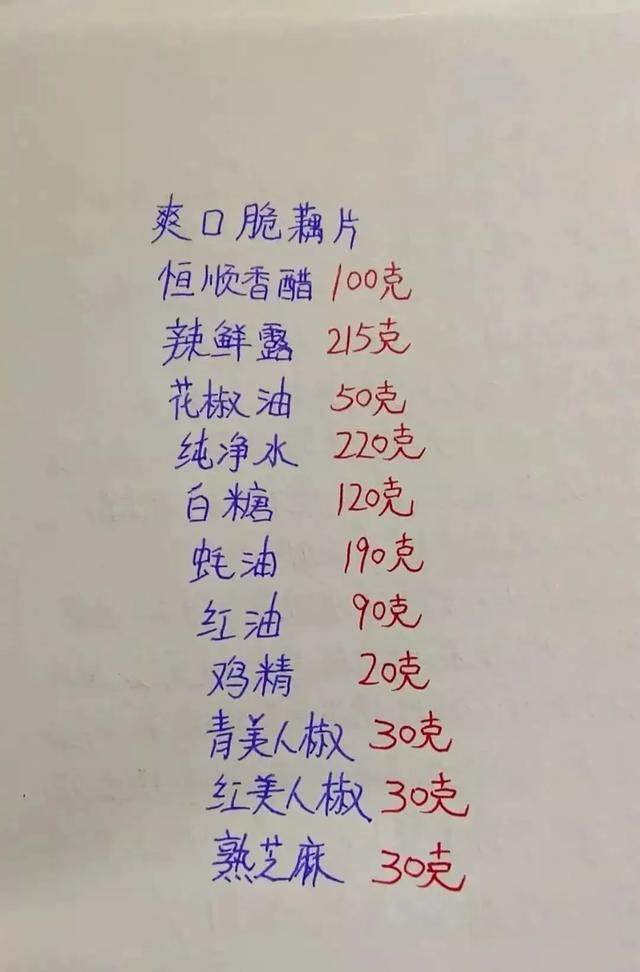 爽口脆藕片
恒顺香醋 100克
辣鲜露 215克
花椒油 50克
纯净水 220克
白糖 120克
蚝油 190克
红油 90克
鸡精 20克
青美人椒 30克
红美人椒 30克
熟芝麻 30克